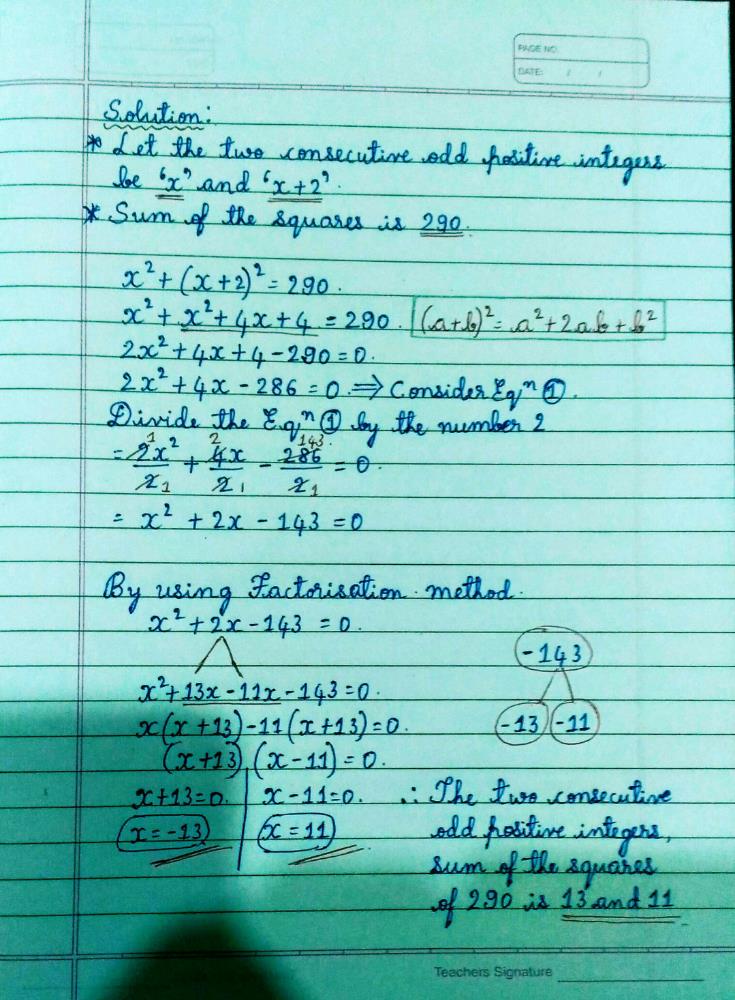 PAGE NO.
DATE: / /
Solution:
* Let the two consecutive odd positive integers
be 'x' and 'x+2'.
* Sum of the squares is 290.
x² + (x+2)² = 290.
x² + x² + 4x + 4 = 290. (a+b)² = a² + 2ab + b²
2x² + 4x + 4 - 290 = 0.
2x² + 4x - 286 = 0. ⇒ Consider Eqⁿ ①.
Divide the Eqⁿ ① by the number 2
1 2 143
= 2x²/2 + 4x/2 - 286/2 = 0.
1 1 1
= x² + 2x - 143 = 0
By using Factorisation method.
x² + 2x - 143 = 0.
x² + 13x - 11x - 143 = 0.
x(x+13) - 11(x+13) = 0.
(x+13) (x-11) = 0.
x+13=0. | x-11=0.
x = -13 | x = 11
-143
-13 -11
∴ The two consecutive
odd positive integers,
sum of the squares
of 290 is 13 and 11
Teachers Signature